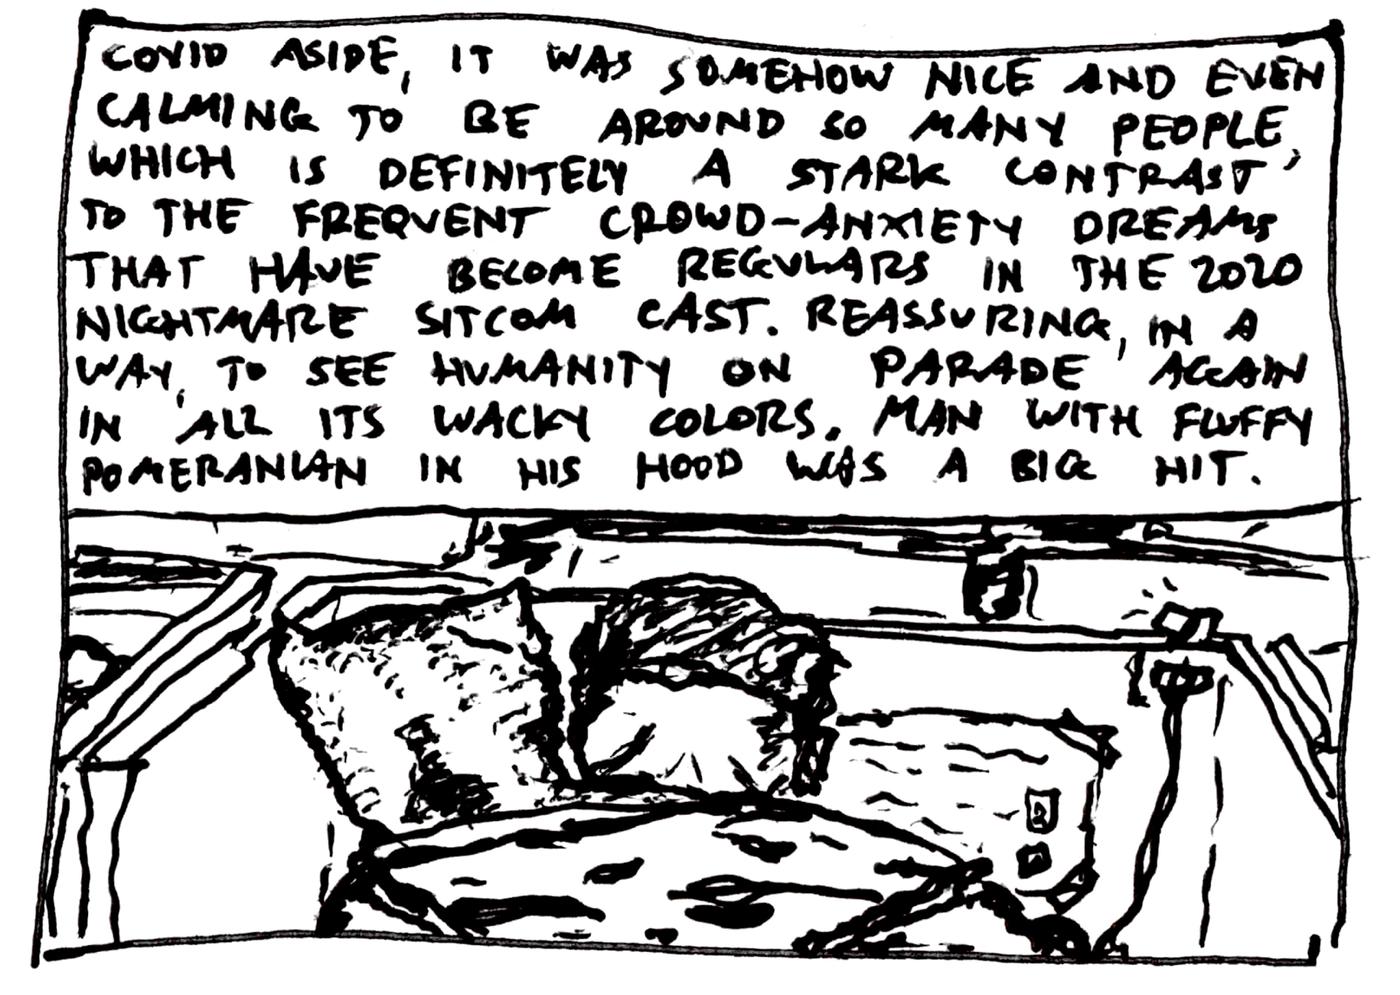 COVID ASIDE, IT WAS SOMEHOW NICE AND EVEN
CALMING TO BE AROUND SO MANY PEOPLE,
WHICH IS DEFINITELY A STARK CONTRAST
TO THE FREQUENT CROWD-ANXIETY DREAMS
THAT HAVE BECOME REGULARS IN THE 2020
NIGHTMARE SITCOM CAST. REASSURING, IN A
WAY, TO SEE HUMANITY ON PARADE AGAIN
IN ALL ITS WACKY COLORS. MAN WITH FLUFFY
POMERANIAN IN HIS HOOD WAS A BIG HIT.